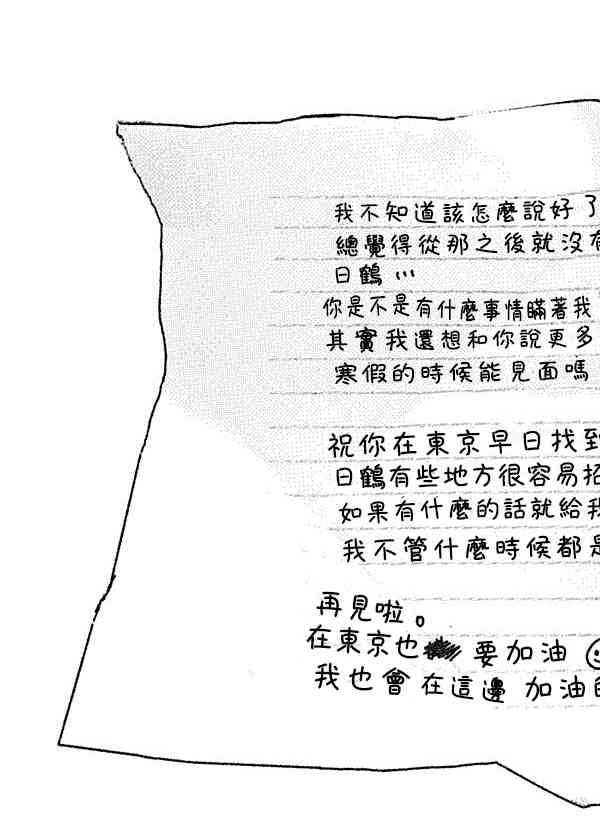 我不知道該怎麼說好了
總覺得從那之後就沒有
日鶴…
你是不是有什麼事情瞞著我
其實我還想和你說更多
寒假的時候能見面嗎
祝你在東京早日找到
日鶴有些地方很容易招
如果有什麼的話就給我
我不管什麼時候都是
再見啦。
在東京也要加油
我也會在這邊加油的